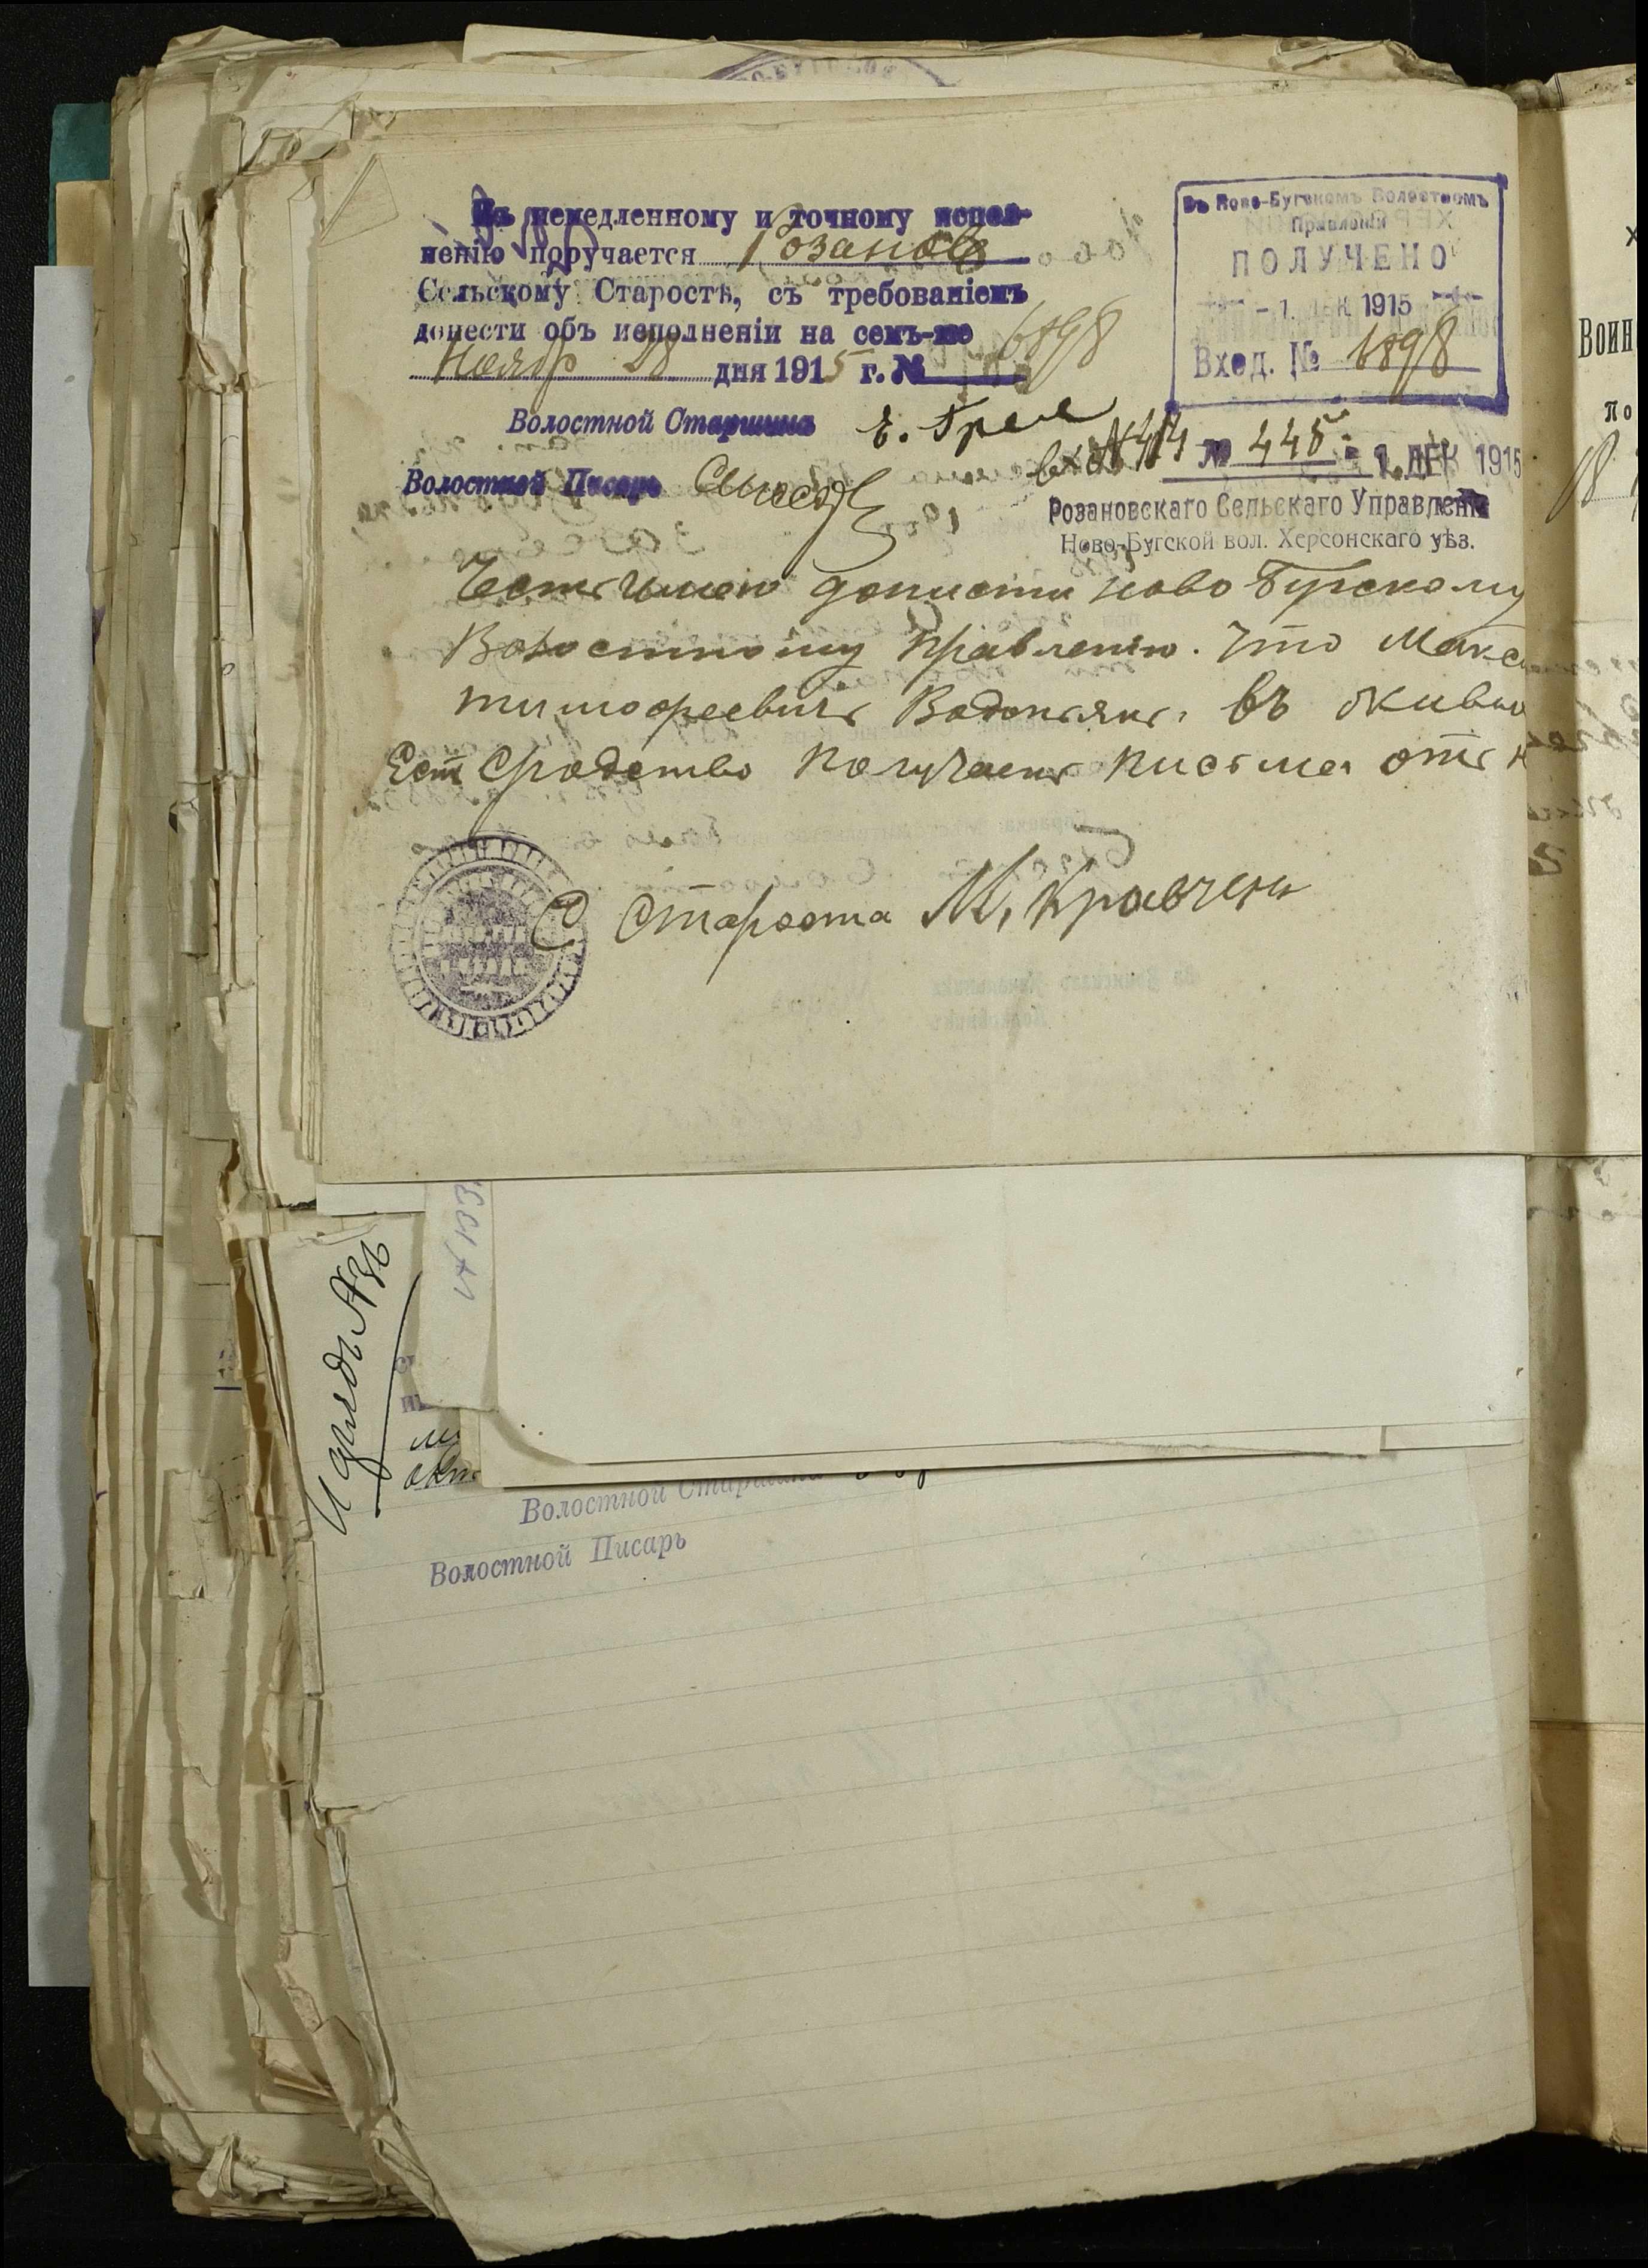 Къ немедленному и точному испол-
ненію поручается Розанов
Сельскому Старостѣ, съ требованіемъ
донести объ исполненіи на семъ-же
Нояб 28 дня 1915 г. № 6898
Волостной Старшина Е. Гре
Волостной Писарь
Въ Ново-Бугскомъ Волостномъ
Правленіи
ПОЛУЧЕНО
- 1. ДЕК 1915
Вход. № 6898
№ 445 - 1. ДЕК 1915
Розановскаго Сельскаго Управленія
Ново-Бугской вол. Херсонскаго уѣз.
Есть имею донисти ново Бугскому
Волостному правленію. Что Макс
тимофеевичъ Водопянъ въ живы
Ест Сродство получаетъ писма отъ н
С Староста М. Кравчен
Нарядъ №36
Волостной Старшина
Волостной Писарь
Воин
По
18